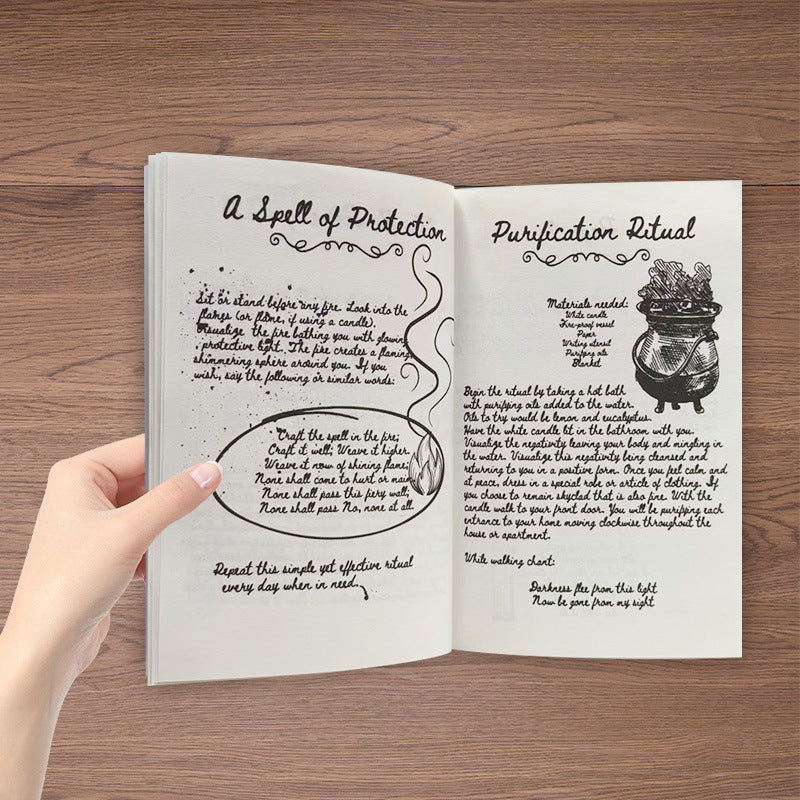 A Spell of Protection
Sit or stand before any fire. Look into the
flames (or flame, if using a candle).
Visualize the fire bathing you with glowing,
protective light. The fire creates a flaming,
shimmering sphere around you. If you
wish, say the following or similar words:
Craft the spell in the fire;
Craft it well; Weave it higher.
Weave it now of shining flame;
None shall come to hurt or maim
None shall pass this fiery wall;
None shall pass No, none at all.
Repeat this simple yet effective ritual
every day when in need.
Purification Ritual
Materials needed:
White candle
Fire-proof vessel
Paper
Writing utensil
Purifying oils
Blanket
Begin the ritual by taking a hot bath
with purifying oils added to the water.
Oils to try would be lemon and eucalyptus.
Have the white candle lit in the bathroom with you.
Visualize the negativity leaving your body and mingling in
the water. Visualize this negativity being cleansed and
returning to you in a positive form. Once you feel calm and
at peace, dress in a special robe or article of clothing. If
you choose to remain skyclad that is also fine. With the
candle walk to your front door. You will be purifying each
entrance to your home moving clockwise throughout the
house or apartment.
While walking chant:
Darkness flee from this light
Now be gone from my sight